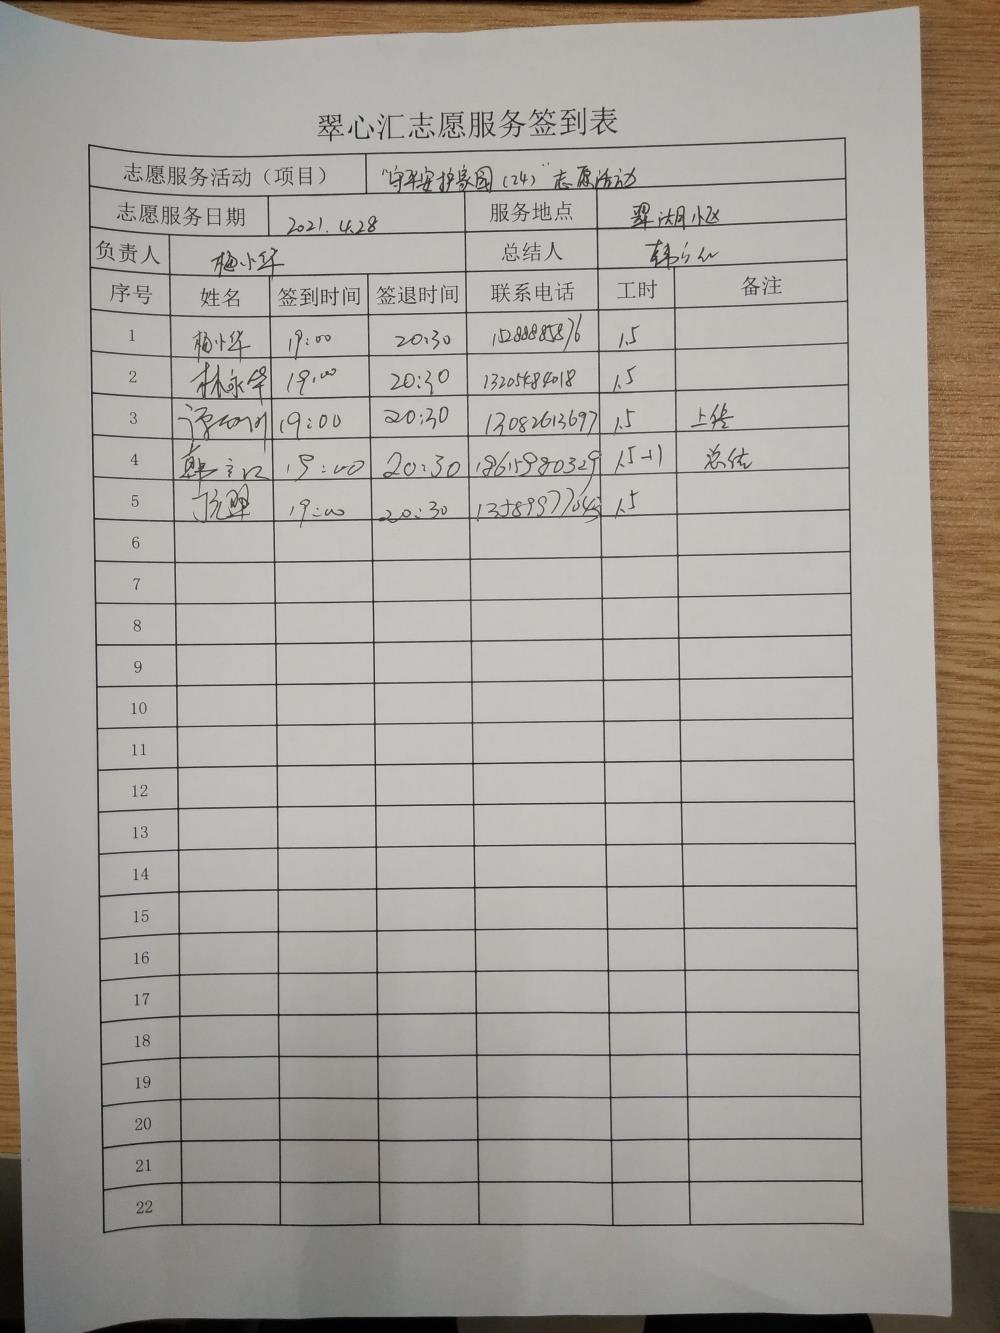 翠心汇志愿服务签到表
志愿服务活动（项目） “守平安护家园（24）”志愿活动
志愿服务日期 2021.4.28 服务地点 翠湖小区
负责人 梅小华 总结人 韩
序号 姓名 签到时间 签退时间 联系电话 工时 备注
1 梅小华 19:00 20:30 1.5
2 林永华 19:00 20:30 13205484018 1.5
3 19:00 20:30 13082613697 1.5 上传
4 韩 19:00 20:30 18615980329 1.5+1 总结
5 翠 19:00 20:30 1.5
6
7
8
9
10
11
12
13
14
15
16
17
18
19
20
21
22